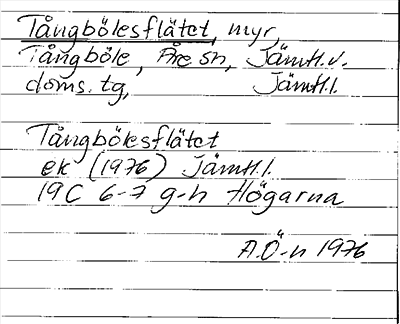 Tångbölesflätet, myr,
Tångböle, Åre sn, Jämtl.v.
doms.tg, Jämtl.l.
Tångbölesflätet
ek (1976) Jämtl.l.
19C 6-7 g-h Högarna
A.Ö-n 1976